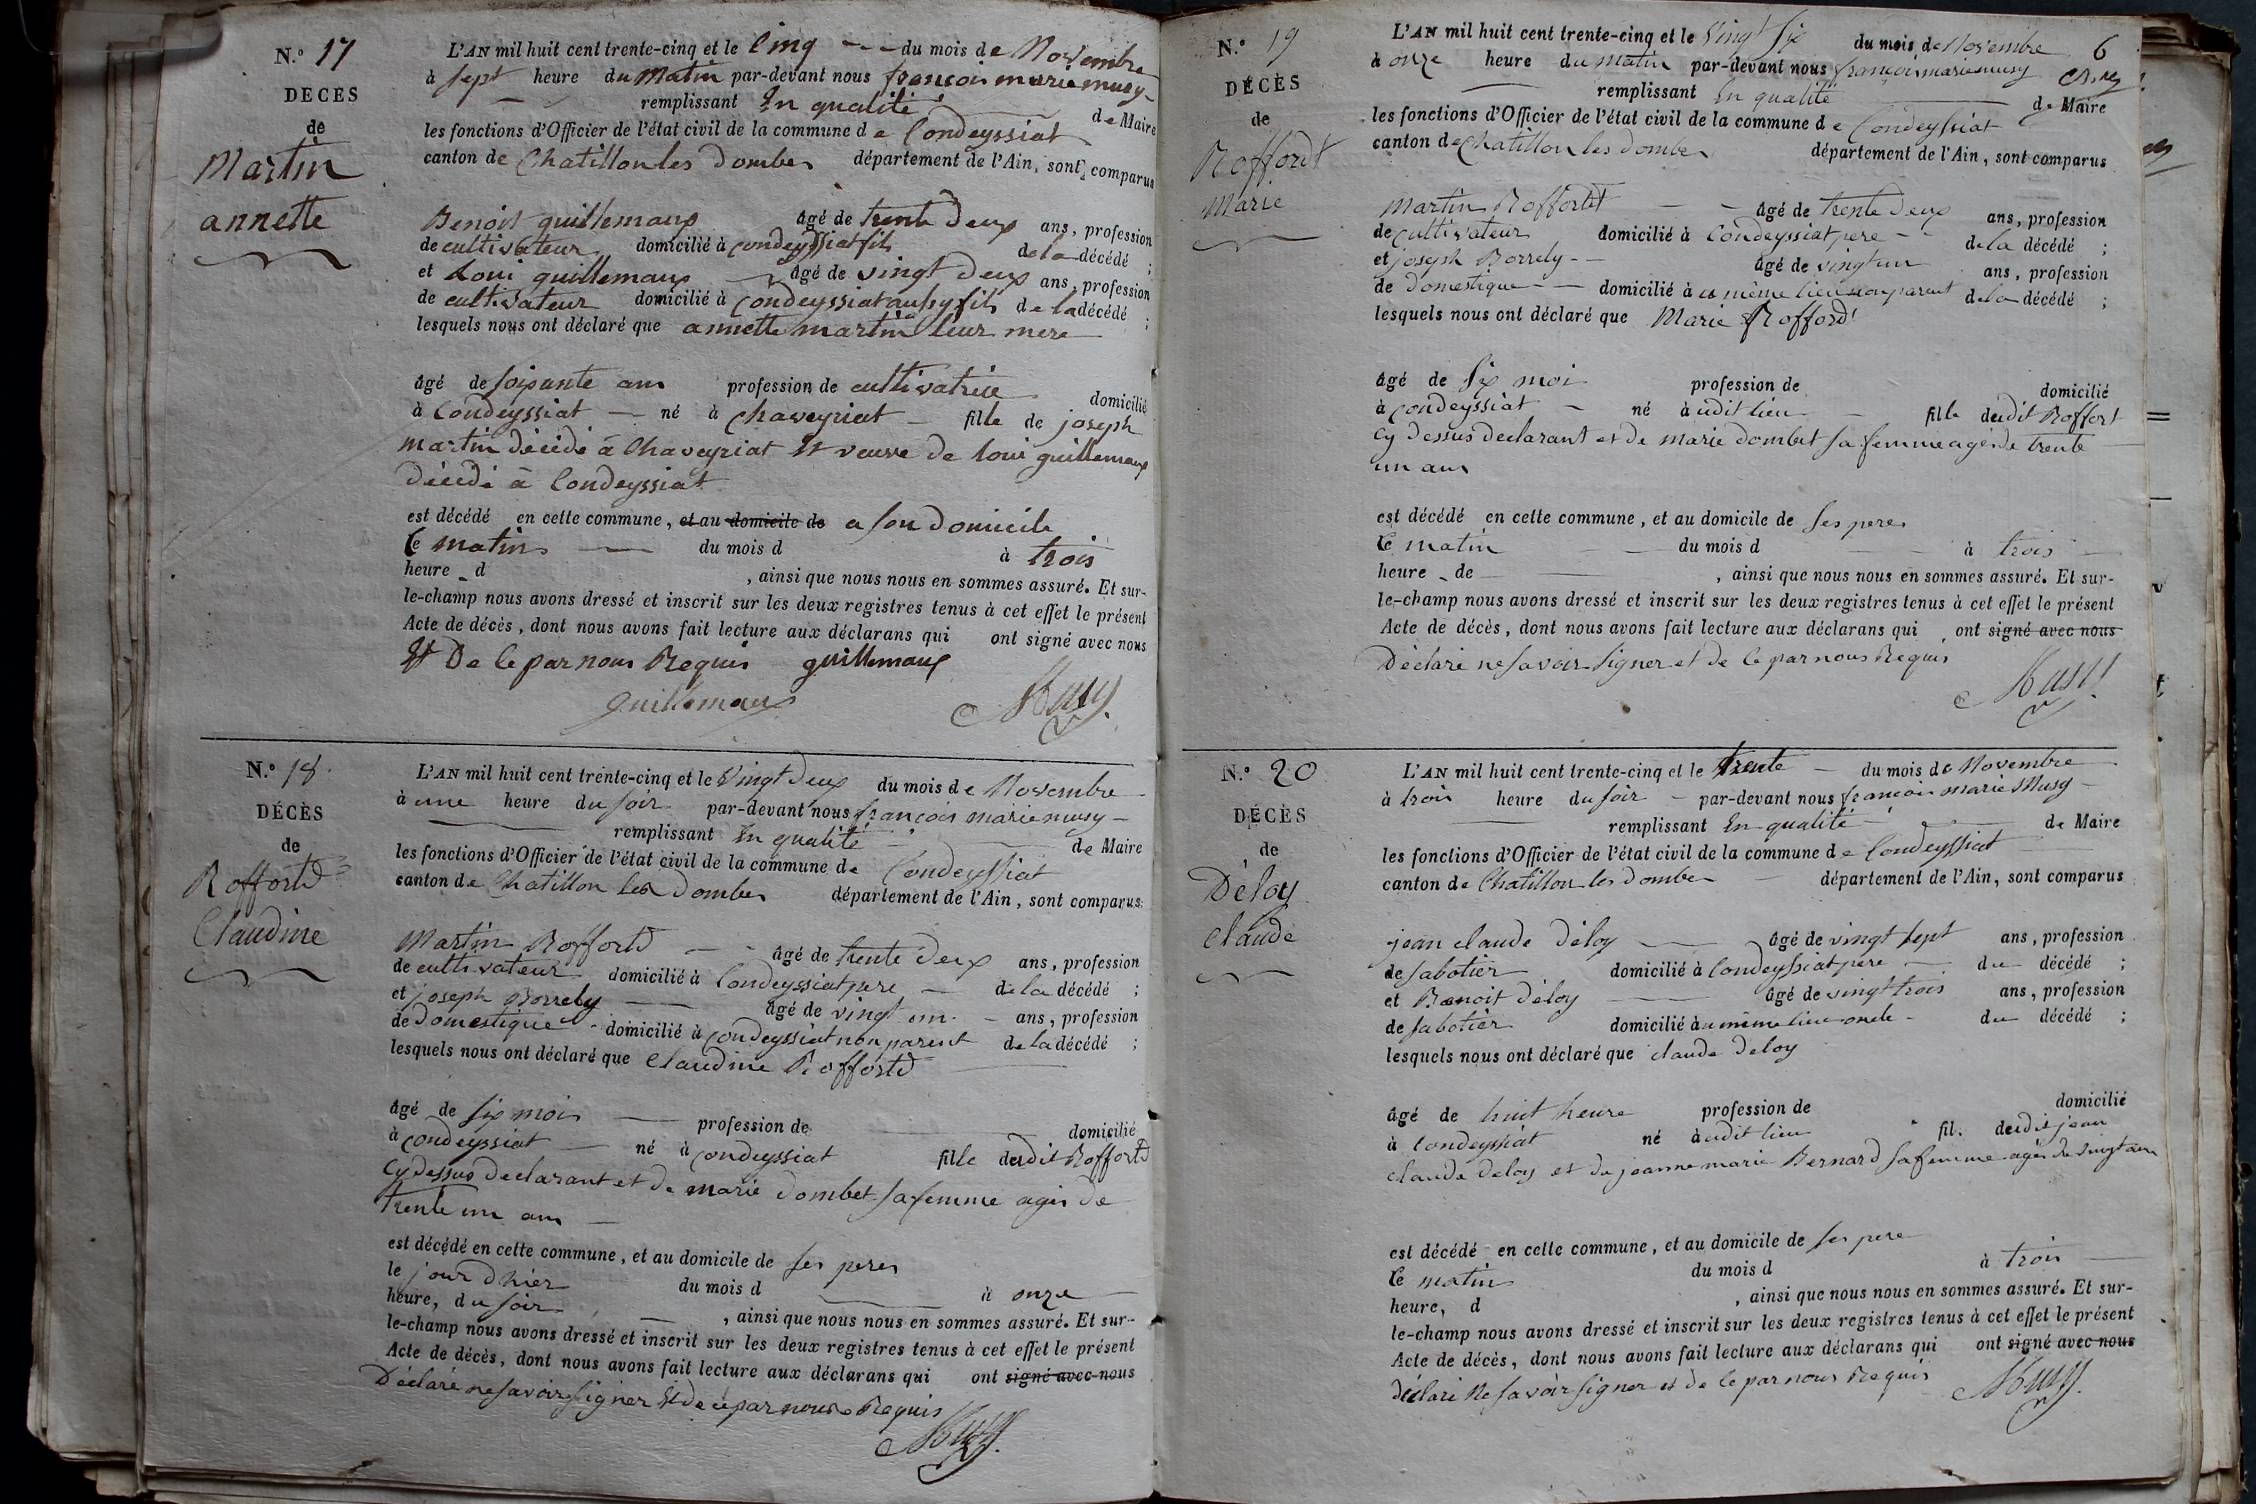 N.° 17
DÉCÈS
de
Martin
annette
L'AN mil huit cent trente-cinq et le Cinq --- du mois de Novembre
à sept heure du Matin par-devant nous françois marie musy
remplissant En qualité de Maire
les fonctions d'Officier de l'état civil de la commune de Condeyssiat
canton de Chatillon les Dombes département de l'Ain, sont comparus
Benoit guillemaux âgé de trente Deux ans, profession
de cultivateur domicilié à Condeyssiat fils de la décédé ;
et Loui guillemaux âgé de vingt Deux ans, profession
de cultivateur domicilié à Condeyssiat aussy fils de la décédé ;
lesquels nous ont déclaré que annette martin leur mere
âgé de soixante ans profession de cultivatrice domicilié
à Condeyssiat né à Chaveyriat fille de joseph
martin décédé à Chaveyriat Et veuve de loui guillemaux
Décédé à Condeyssiat
est décédé en cette commune, et au domicile de a son Domicile
le matin du mois d à trois
heure d , ainsi que nous nous en sommes assuré. Et sur-
le-champ nous avons dressé et inscrit sur les deux registres tenus à cet effet le présent
Acte de décès, dont nous avons fait lecture aux déclarans qui ont signé avec nous
Et De Ce par nous Requis guillemaux
guillemaux Musy
N.° 18
DÉCÈS
de
Roffortd
Claudine
L'AN mil huit cent trente-cinq et le Vingt Deux du mois de Novembre
à une heure du soir par-devant nous françois marie musy
remplissant En qualité de Maire
les fonctions d'Officier de l'état civil de la commune de Condeyssiat
canton de Chatillon les Dombes département de l'Ain, sont comparus
Martin Roffortd âgé de trente Deux ans, profession
de cultivateur domicilié à Condeyssiat pere de la décédé ;
et joseph Borrely âgé de vingt un ans, profession
de domestique domicilié à Condeyssiat non parent de la décédé ;
lesquels nous ont déclaré que Claudine Roffortd
âgé de six mois profession de domicilié
à Condeyssiat né à Condeyssiat fille dudit Roffortd
Cy dessus declarant et de marie dombet sa femme agés de
trente un ans
est décédé en cette commune, et au domicile de ses peres
le jour d'hier du mois d à onze
heure, du soir , ainsi que nous nous en sommes assuré. Et sur-
le-champ nous avons dressé et inscrit sur les deux registres tenus à cet effet le présent
Acte de décès, dont nous avons fait lecture aux déclarans qui ont signé avec nous
Déclaré ne savoir signer Et de ce par nous Requis
Musy
N.° 19
DÉCÈS
de
Roffordt
Marie
L'AN mil huit cent trente-cinq et le Vingt Six du mois de Novembre 6
à onze heure du matin par-devant nous françois marie musy
remplissant En qualité de Maire
les fonctions d'Officier de l'état civil de la commune de Condeyssiat
canton de Chatillon les Dombes département de l'Ain, sont comparus
Martin Roffortdt âgé de trente Deux ans, profession
de cultivateur domicilié à Condeyssiat pere de la décédé ;
et joseph Borrely âgé de vingt un ans, profession
de domestique domicilié à ce même lieu non parent de la décédé ;
lesquels nous ont déclaré que Marie Roffordt
âgé de Six moi profession de domicilié
à Condeyssiat né à udit lieu fille dudit Roffort
Cy dessus declarant et de marie dombet sa femme agés de trente
un ans
est décédé en cette commune, et au domicile de ses peres
le matin du mois d à trois
heure de , ainsi que nous nous en sommes assuré. Et sur-
le-champ nous avons dressé et inscrit sur les deux registres tenus à cet effet le présent
Acte de décès, dont nous avons fait lecture aux déclarans qui ont signé avec nous
Déclaré ne savoir signer et de Ce par nous Requis
Musy
N.° 20
DÉCÈS
de
Déloy
Claude
L'AN mil huit cent trente-cinq et le trente du mois de Novembre
à trois heure du soir par-devant nous françois marie Musy
remplissant En qualité de Maire
les fonctions d'Officier de l'état civil de la commune de Condeyssiat
canton de Chatillon les dombes département de l'Ain, sont comparus
jean claude déloy âgé de vingt sept ans, profession
de sabotier domicilié à Condeyssiat pere du décédé ;
et Benoit déloy âgé de vingt trois ans, profession
de sabotier domicilié àu même lieu oncle du décédé ;
lesquels nous ont déclaré que claude deloy
âgé de huit heure profession de domicilié
à Condeyssiat né à udit lieu fil. dudit jean
claude deloy et de jeanne marie Bernard sa femme agés de vingt ans
est décédé en cette commune, et au domicile de ses pere
le matin du mois d à trois
heure, d , ainsi que nous nous en sommes assuré. Et sur-
le-champ nous avons dressé et inscrit sur les deux registres tenus à cet effet le présent
Acte de décès, dont nous avons fait lecture aux déclarans qui ont signé avec nous
déclaré Ne savoir signer et de Ce par nous Requis
Musy